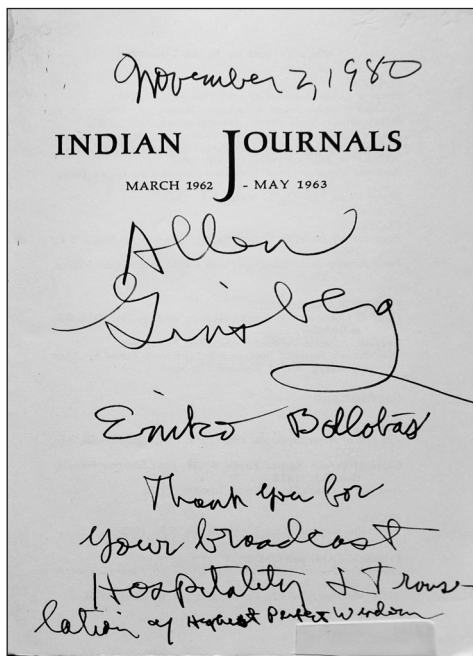 November 2, 1980
INDIAN JOURNALS
MARCH 1962 - MAY 1963
Allen
Ginsberg
Enikö Bollobás
Thank you for
your broadcast
Hospitality & Trans-
lation of Highest Perfect Wisdom